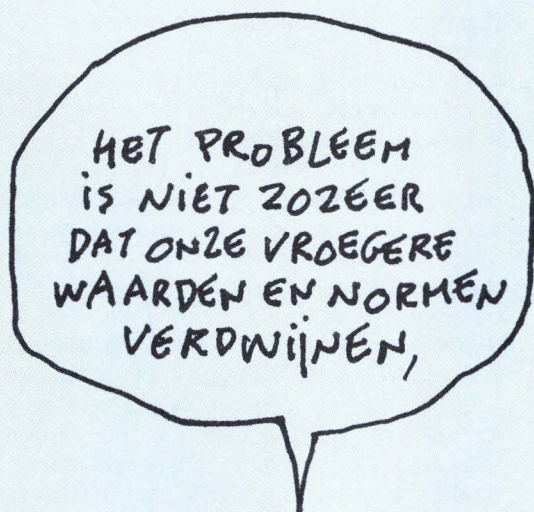 HET PROBLEEM
IS NIET ZOZEER
DAT ONZE VROEGERE
WAARDEN EN NORMEN
VERDWIJNEN,